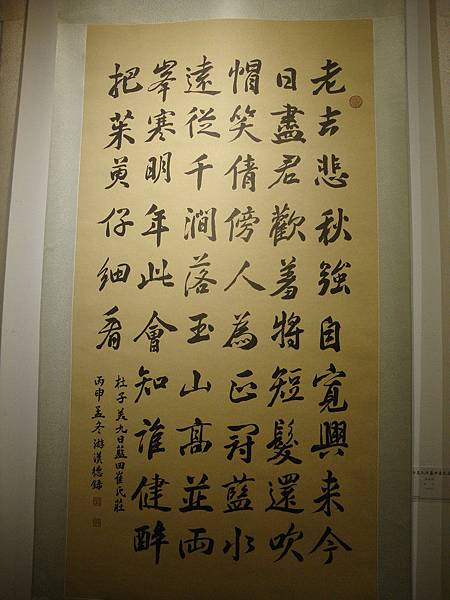 老去悲秋強自寬興來今
日盡君歡羞將短髮還吹
帽笑倩傍人為正冠藍水
遠從千澗落玉山高並兩
峯寒明年此會知誰健醉
把茱萸仔細看
杜子美九日藍田崔氏莊
丙申孟冬游漢德